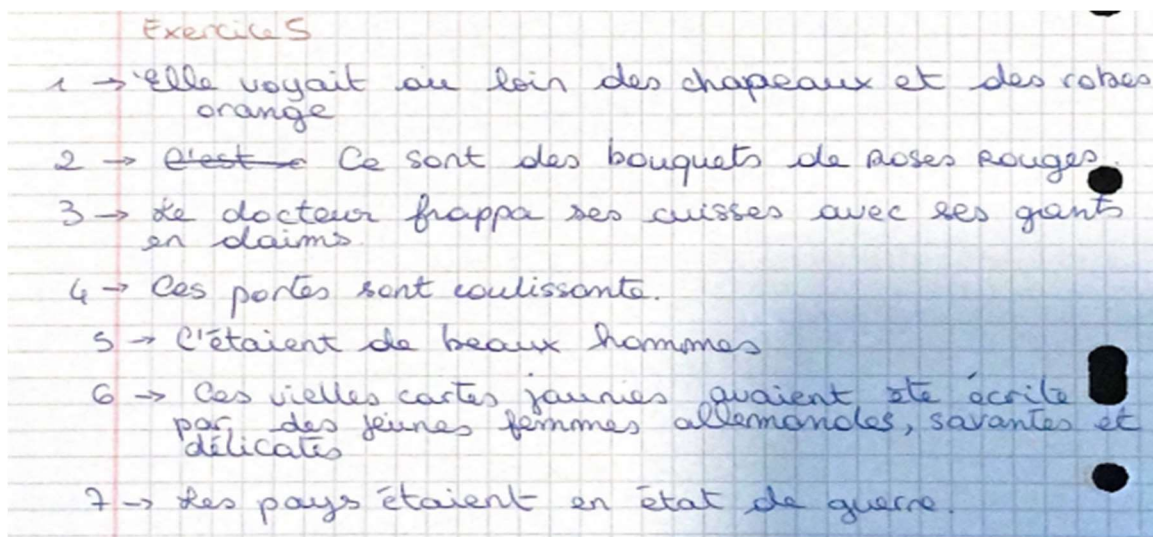 Exercice 5
1 → elle voyait au loin des chapeaux et des robes
orange
2 → C'est Ce sont des bouquets de roses rouges.
3 → Le docteur frappa ses cuisses avec ses gants
en daims.
4 → Ces portes sont coulissante.
5 → C'étaient de beaux hommes
6 → Ces vielles cartes jaunies avaient été écrite
par des jeunes femmes allemandes, savantes et
délicates
7 → Les pays étaient en état de guerre.